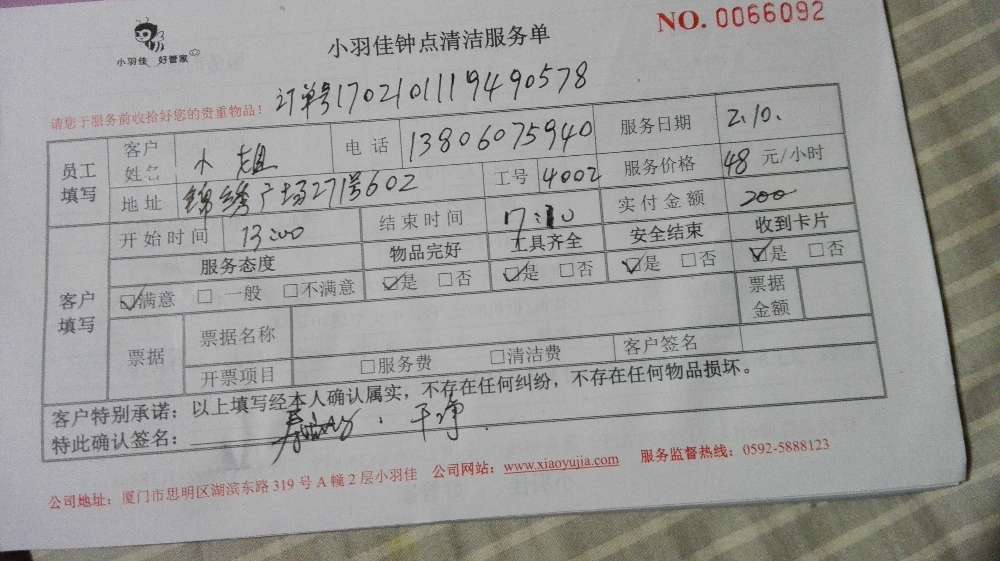 NO. 0066092
小羽佳 好管家
小羽佳钟点清洁服务单
请您于服务前收拾好您的贵重物品！ 订单号170210111949 0578
员工填写 客户姓名 小姐 电话 13806075940 服务日期 2.10.
地址 锦绣广场271号602 工号 4002 服务价格 48 元/小时
客户填写 开始时间 13:00 结束时间 17:10 实付金额 200
服务态度 物品完好 工具齐全 安全结束 收到卡片
☑满意 □ 一般 □不满意 ☑是 □否 ☑是 □否 ☑是 □否 ☑是 □否
票据 票据名称 票据金额
开票项目 □服务费 □清洁费 客户签名
客户特别承诺：以上填写经本人确认属实，不存在任何纠纷，不存在任何物品损坏。
特此确认签名： 干净
公司地址：厦门市思明区湖滨东路 319 号 A 幢 2 层小羽佳 公司网站：www.xiaoyujia.com 服务监督热线：0592-5888123